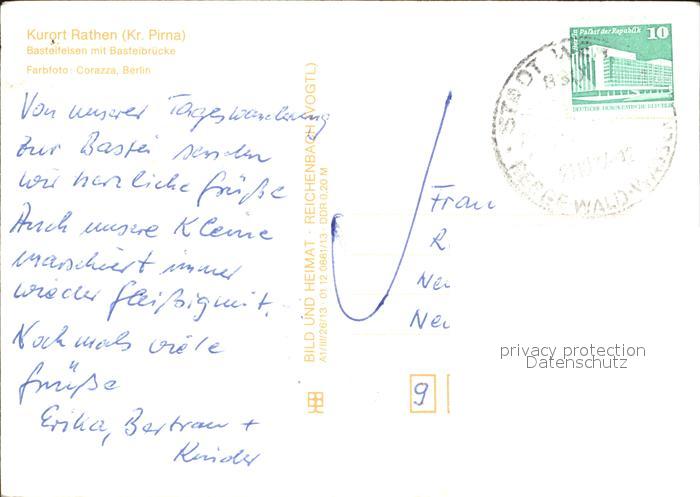 Kurort Rathen (Kr. Pirna)
Basteifelsen mit Basteibrücke
Farbfoto: Corazza, Berlin
Von unserer Tageswanderung
zur Bastei senden
wir herzliche Grüße
Auch unsere Kleine
marschiert immer
wieder fleißig mit.
Nochmals viele
Grüße
Erika, Bertram +
Kinder
BILD UND HEIMAT · REICHENBACH (VOGTL)
A1/III/26/13 · 01 12 0661/13 DDR 0,20 M
Palast der Republik
10
DEUTSCHE DEMOKRATISCHE REPUBLIK
STADT
Frau
R.
Neu
Neu
9
privacy protection
Datenschutz